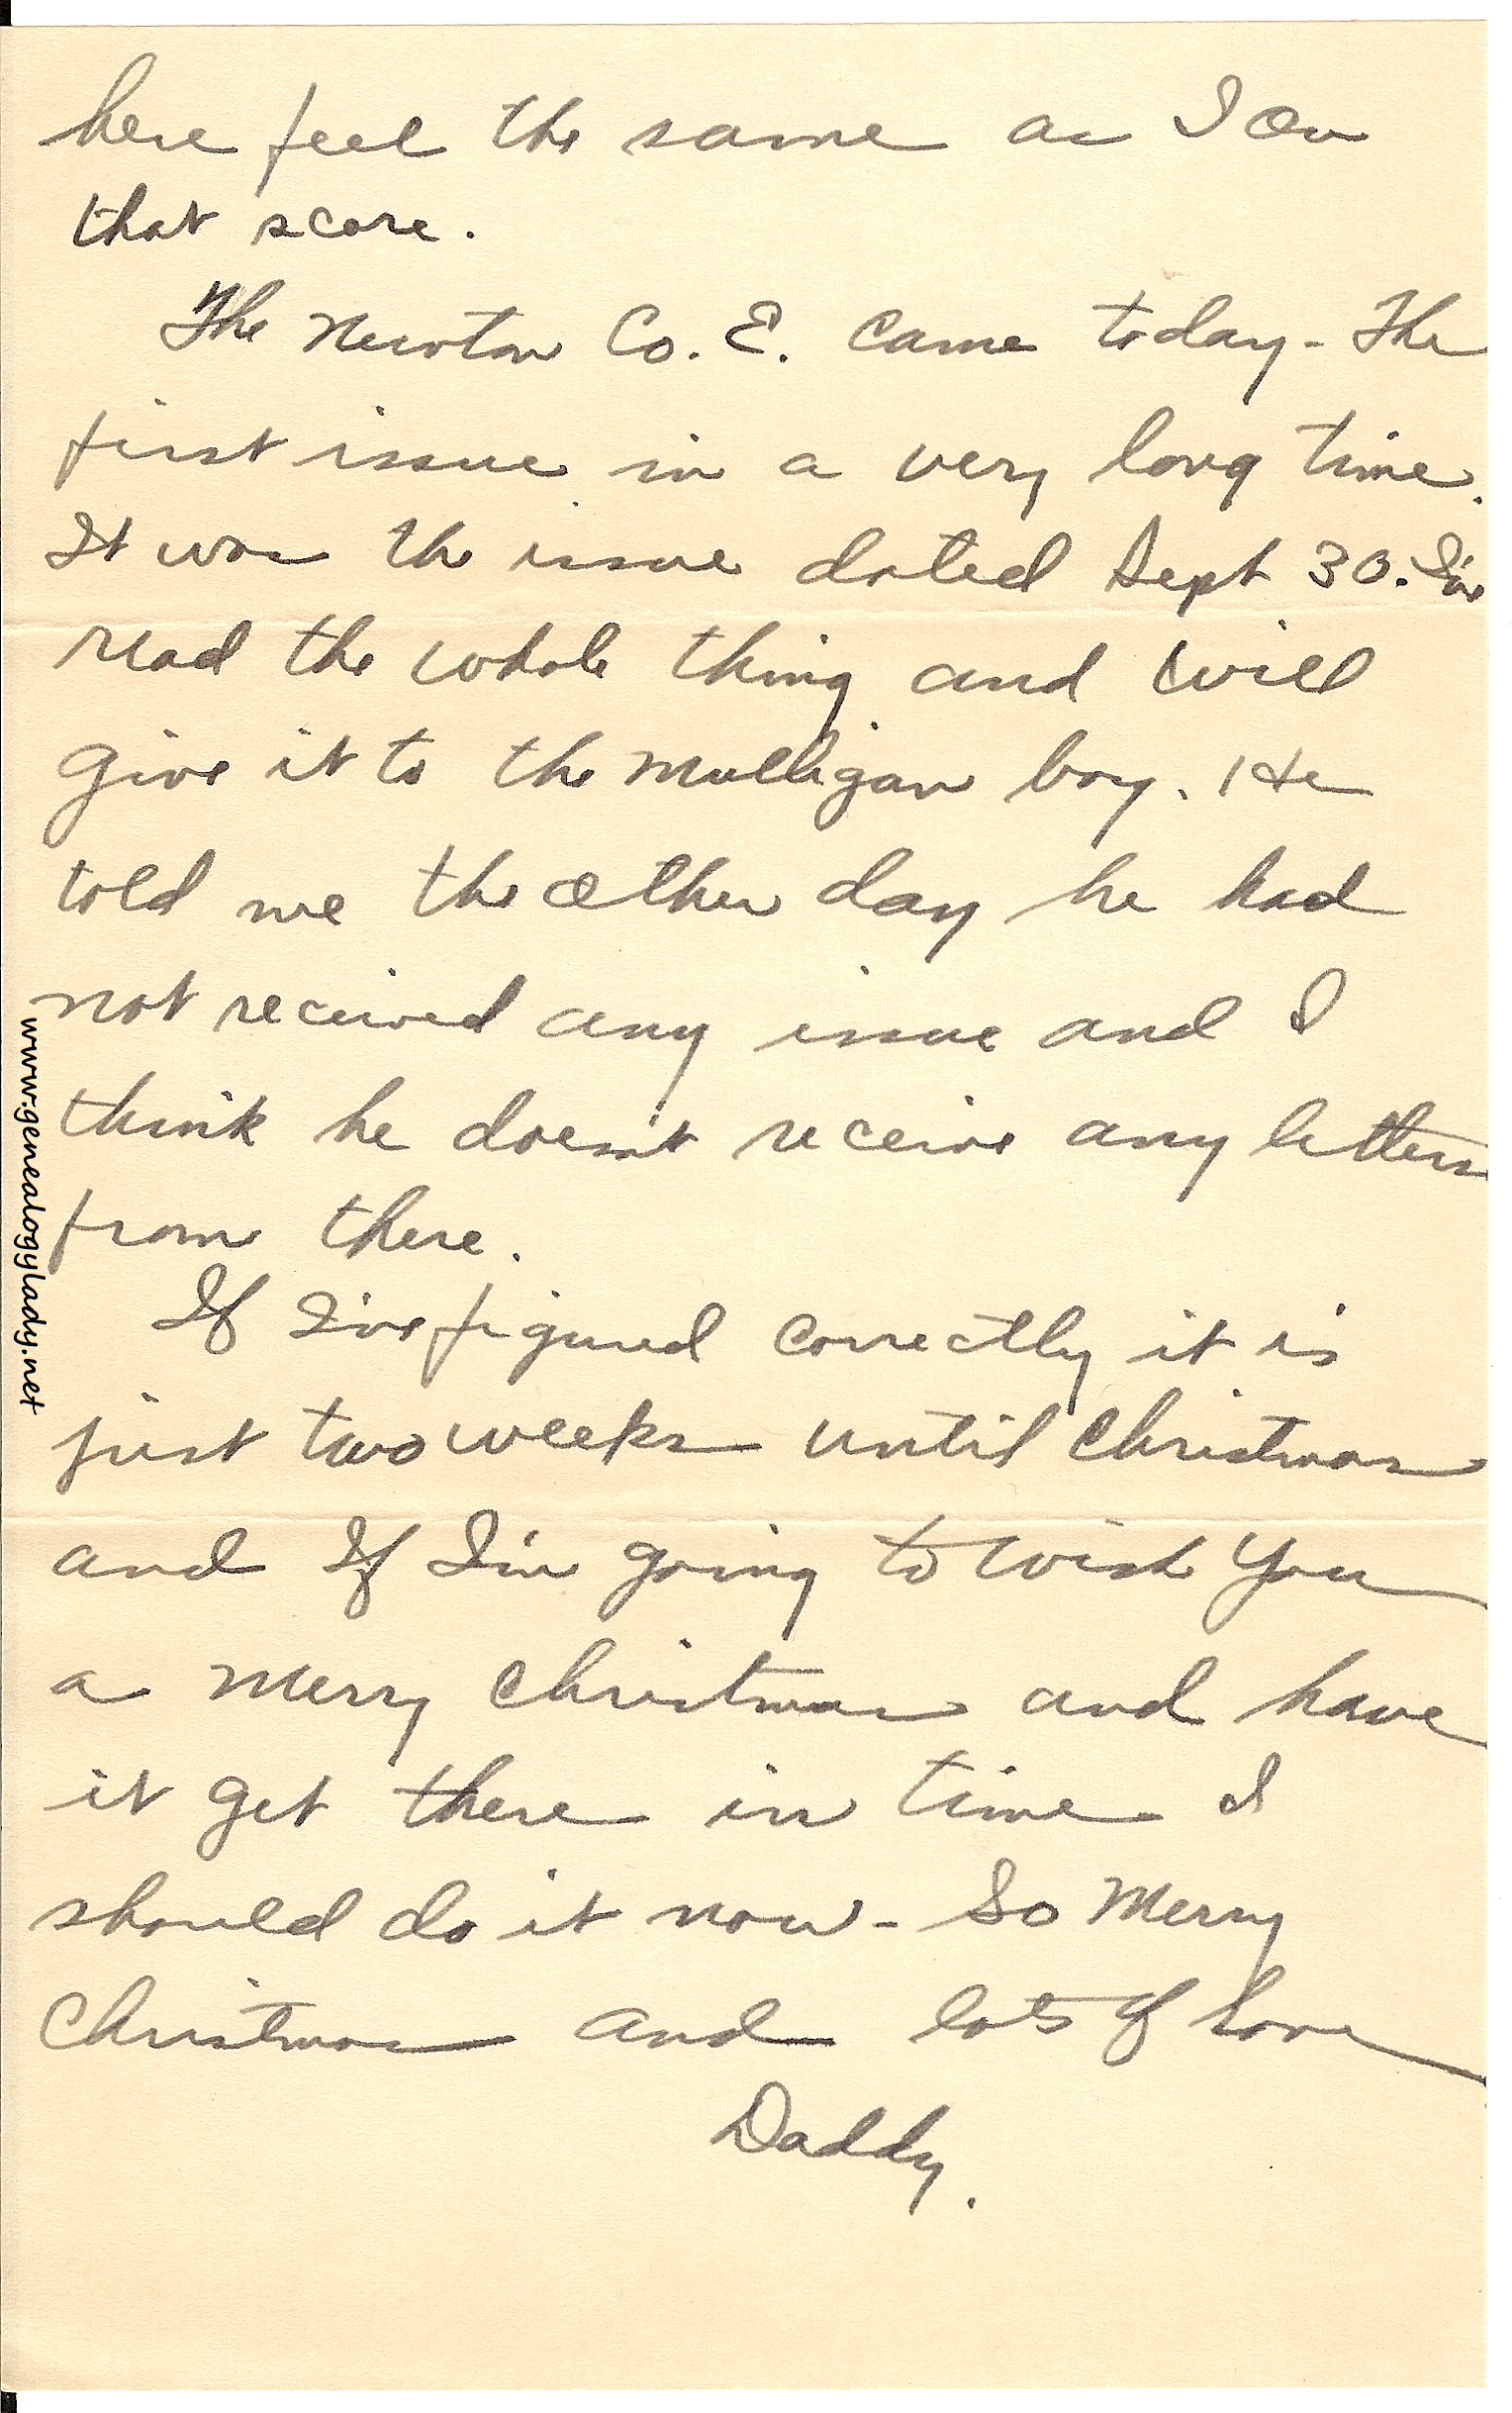 here feel the same as I on
that score.
The Newton Co. E. came today - The
first issue in a very long time.
It was the issue dated Sept 30. I've
read the whole thing and will
give it to the Mulligan boy. He
told me the other day he had
not received any issue and I
think he doesn't receive any letters
from there.
If I've figured correctly it is
just two weeks until Christmas
and If I'm going to wish you
a Merry Christmas and have
it get there in time I
should do it now - So Merry
Christmas and lots of love
Daddy.
www.genealogylady.net